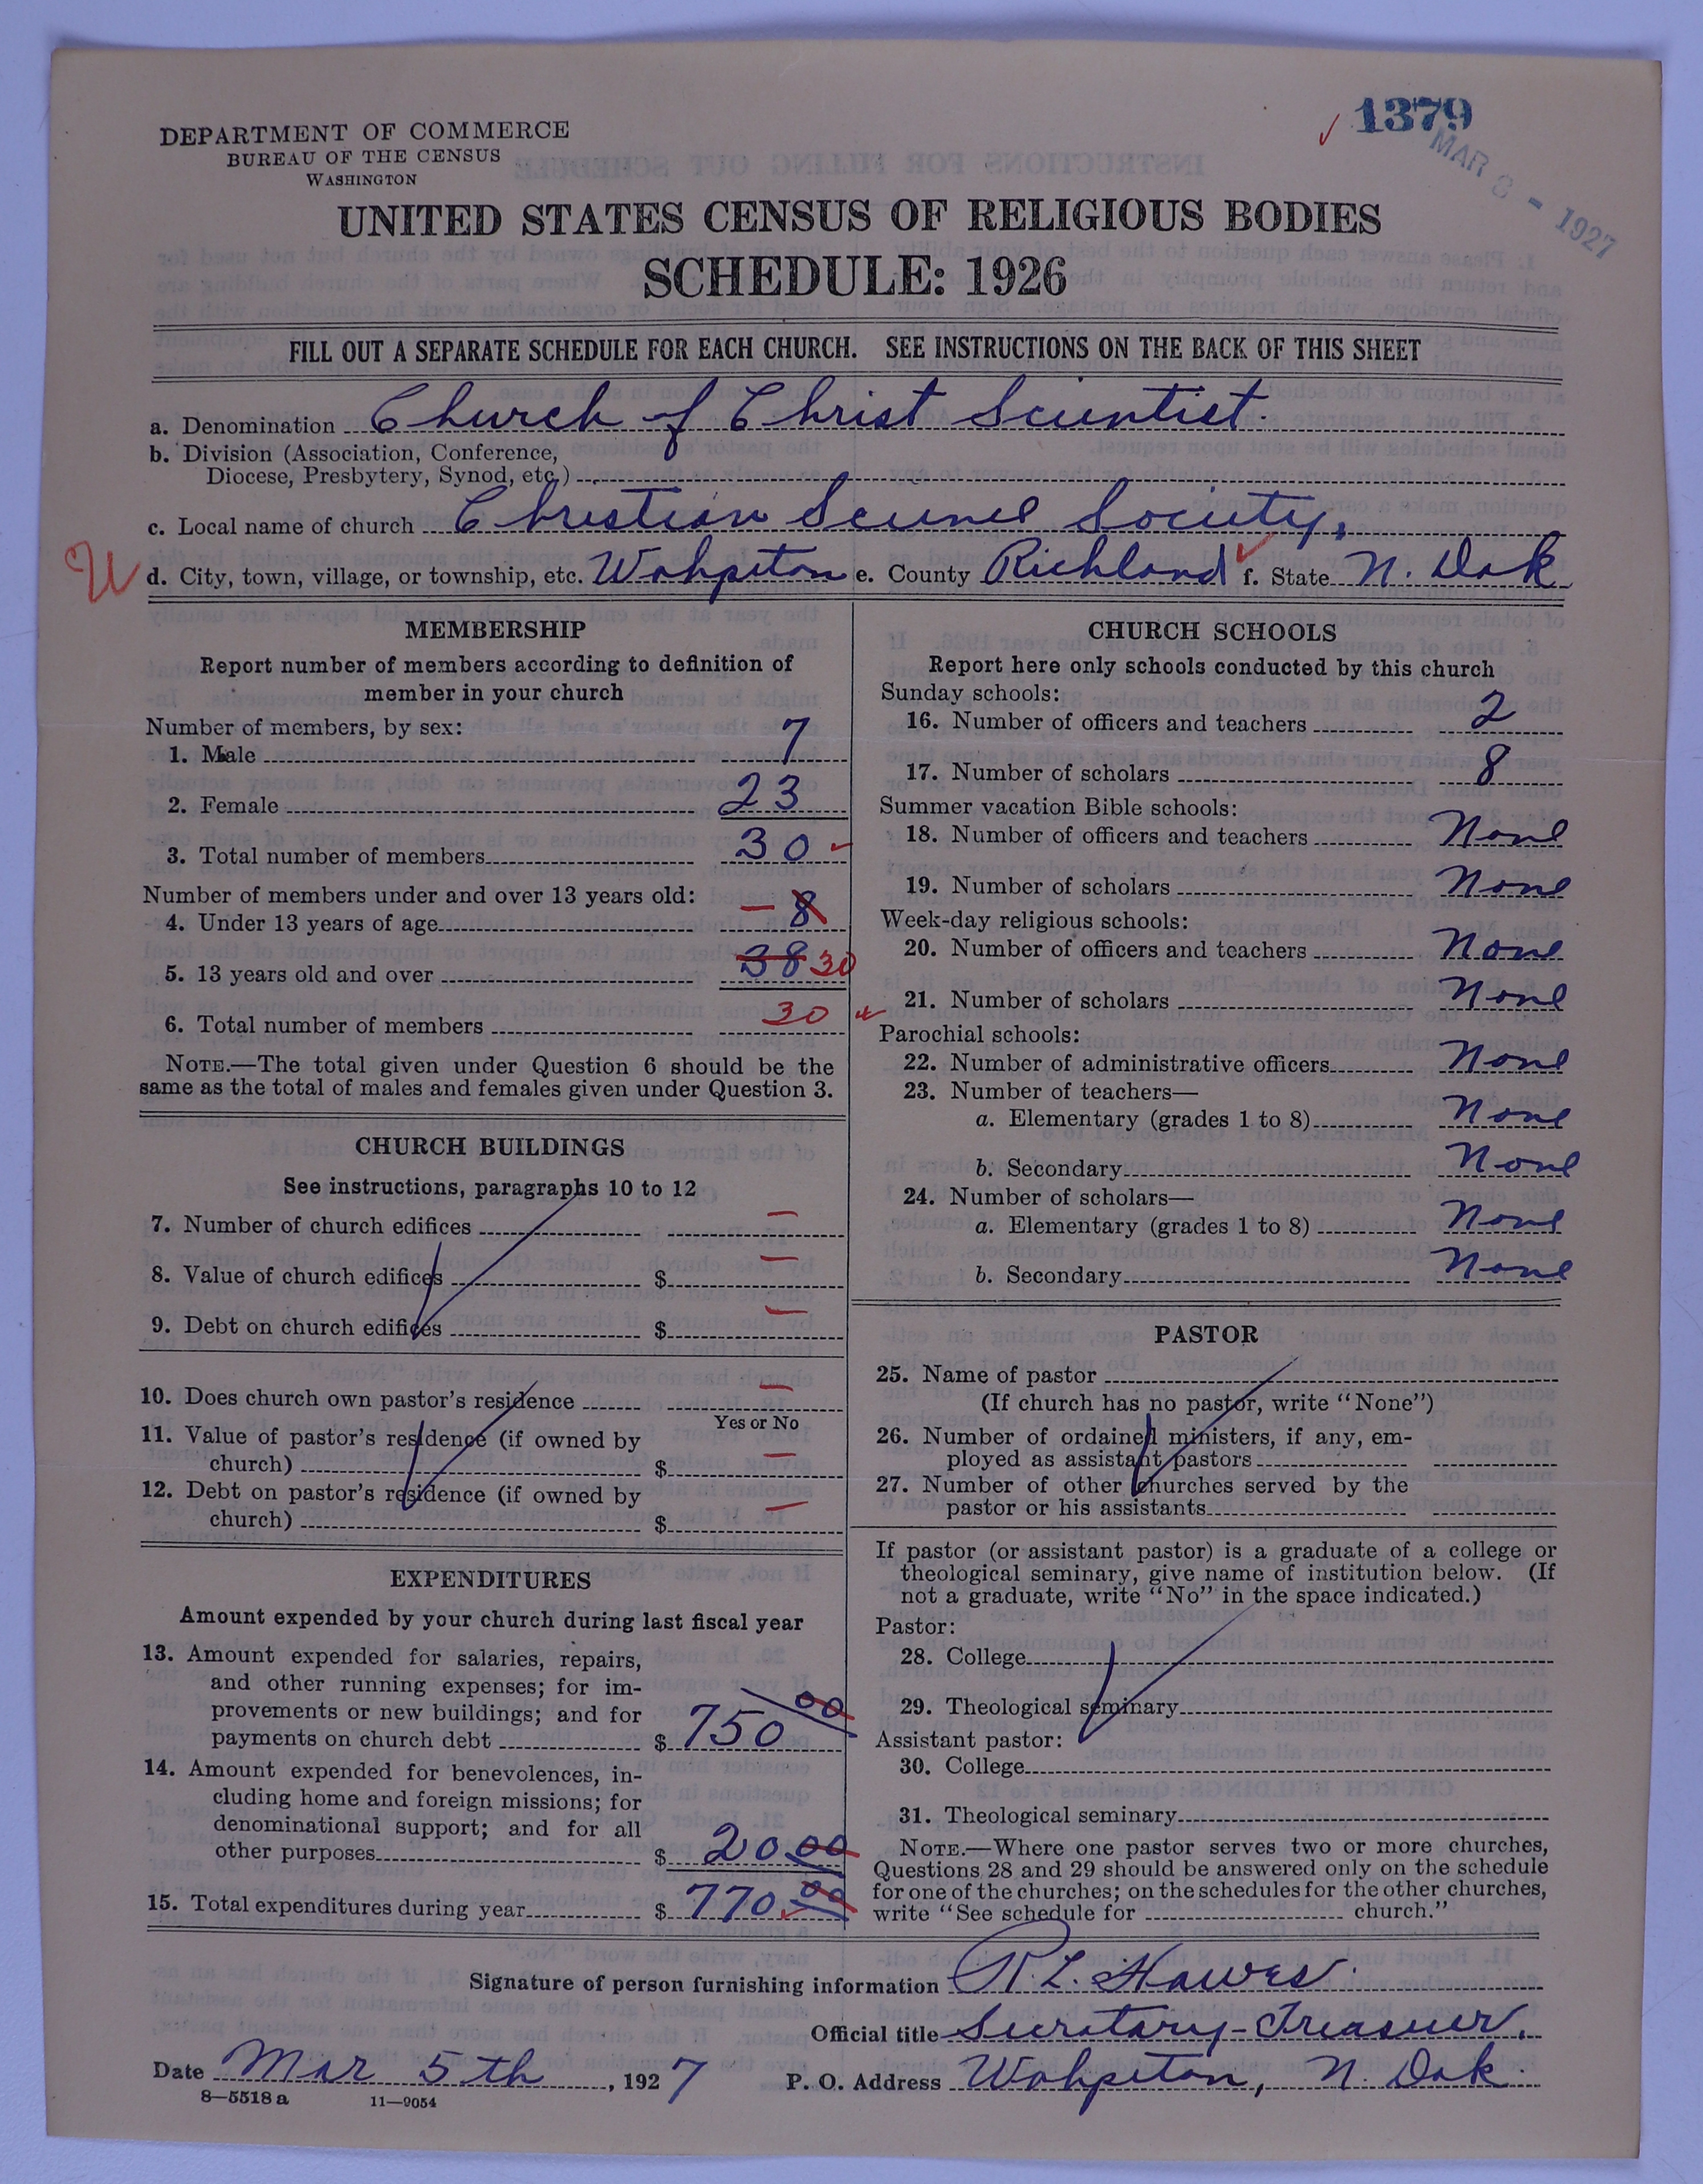 1379
MAR 8 - 1927
DEPARTMENT OF COMMERCE
BUREAU OF THE CENSUS
WASHINGTON
UNITED STATES CENSUS OF RELIGIOUS BODIES
SCHEDULE: 1926
FILL OUT A SEPARATE SCHEDULE FOR EACH CHURCH. SEE INSTRUCTIONS ON THE BACK OF THIS SHEET
a. Denomination Church of Christ Scientist.
b. Division (Association, Conference,
Diocese, Presbytery, Synod, etc.)
c. Local name of church Christian Science Society,
d. City, town, village, or township, etc. Wahpeton e. County Richland f. State N. Dak
MEMBERSHIP
Report number of members according to definition of
member in your church
Number of members, by sex:
1. Male 7
2. Female 23
3. Total number of members 30
Number of members under and over 13 years old:
4. Under 13 years of age - 8
5. 13 years old and over 38 30
6. Total number of members 30
NOTE.—The total given under Question 6 should be the
same as the total of males and females given under Question 3.
CHURCH BUILDINGS
See instructions, paragraphs 10 to 12
7. Number of church edifices -
8. Value of church edifices $ -
9. Debt on church edifices $ -
10. Does church own pastor's residence -
Yes or No
11. Value of pastor's residence (if owned by
church) $ -
12. Debt on pastor's residence (if owned by
church) $ -
EXPENDITURES
Amount expended by your church during last fiscal year
13. Amount expended for salaries, repairs,
and other running expenses; for im-
provements or new buildings; and for
payments on church debt $ 750 00
14. Amount expended for benevolences, in-
cluding home and foreign missions; for
denominational support; and for all
other purposes $ 20 00
15. Total expenditures during year $ 770 00
CHURCH SCHOOLS
Report here only schools conducted by this church
Sunday schools:
16. Number of officers and teachers 2
17. Number of scholars 8
Summer vacation Bible schools:
18. Number of officers and teachers None
19. Number of scholars None
Week-day religious schools:
20. Number of officers and teachers None
21. Number of scholars None
Parochial schools:
22. Number of administrative officers None
23. Number of teachers—
a. Elementary (grades 1 to 8) None
b. Secondary None
24. Number of scholars—
a. Elementary (grades 1 to 8) None
b. Secondary None
PASTOR
25. Name of pastor
(If church has no pastor, write "None")
26. Number of ordained ministers, if any, em-
ployed as assistant pastors
27. Number of other churches served by the
pastor or his assistants
If pastor (or assistant pastor) is a graduate of a college or
theological seminary, give name of institution below. (If
not a graduate, write "No" in the space indicated.)
Pastor:
28. College
29. Theological seminary
Assistant pastor:
30. College
31. Theological seminary
NOTE.—Where one pastor serves two or more churches,
Questions 28 and 29 should be answered only on the schedule
for one of the churches; on the schedules for the other churches,
write "See schedule for church."
Signature of person furnishing information R. L. Hawes.
Official title Secretary-Treasurer,
Date Mar 5th, 1927 P. O. Address Wahpeton, N. Dak.
8—5518 a 11—9054